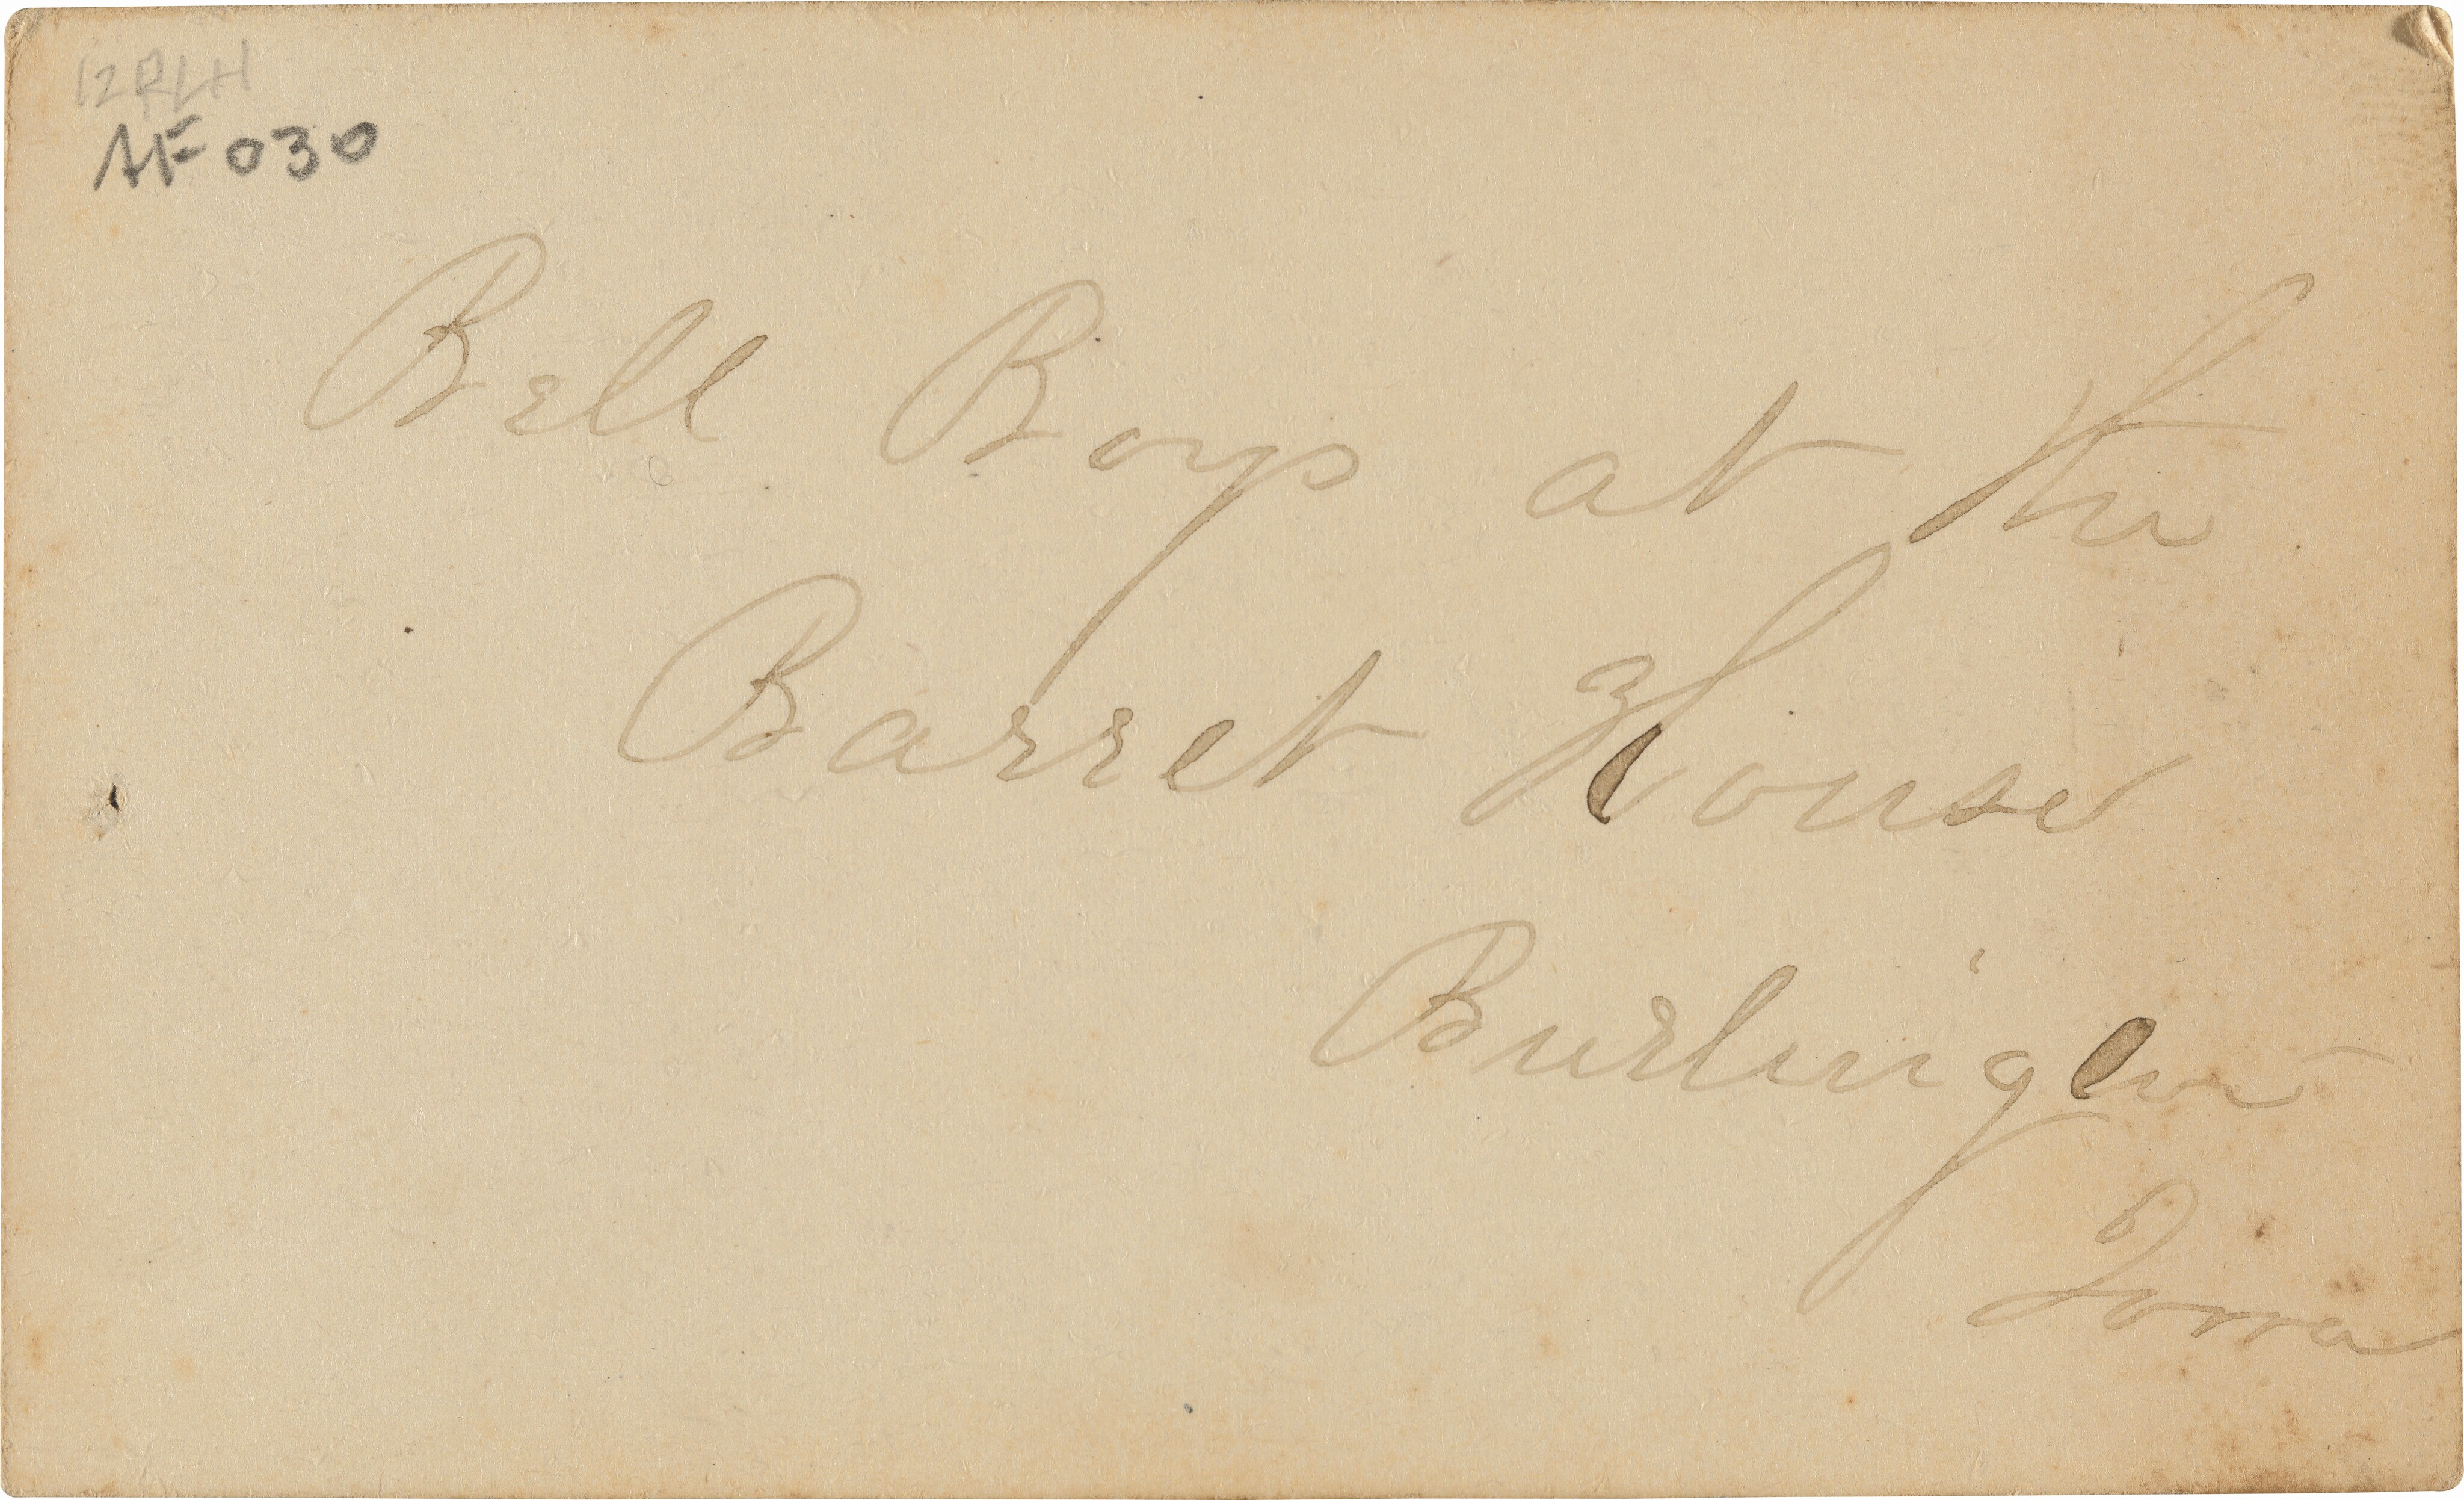 AF 030
Bell Boys at the
Barret House
Burlington
Iowa